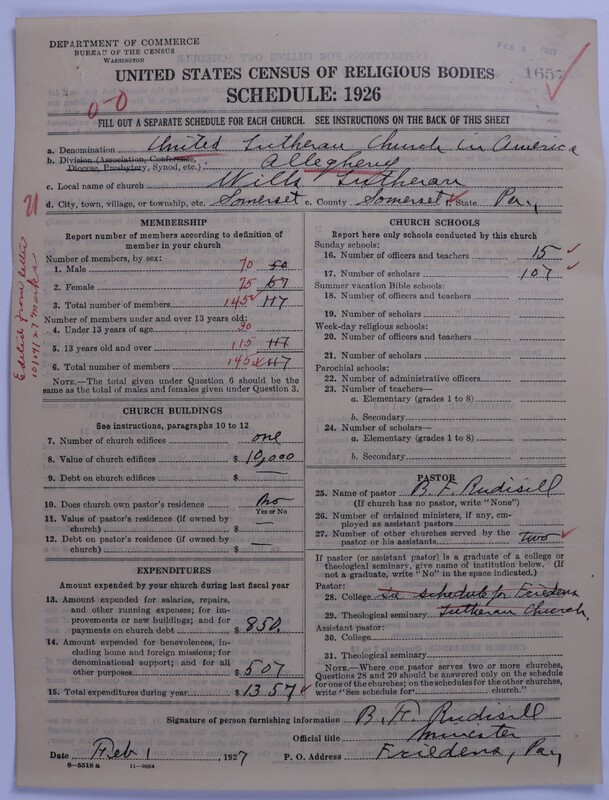 DEPARTMENT OF COMMERCE
BUREAU OF THE CENSUS
WASHINGTON
FEB 1927
1657
UNITED STATES CENSUS OF RELIGIOUS BODIES
SCHEDULE: 1926
0-0
FILL OUT A SEPARATE SCHEDULE FOR EACH CHURCH. SEE INSTRUCTIONS ON THE BACK OF THIS SHEET
a. Denomination United Lutheran Church in America
b. Division (Association, Conference, Diocese, Presbytery, Synod, etc.) Allegheny
c. Local name of church Wills Lutheran
d. City, town, village, or township, etc. Somerset e. County Somerset f. State Pa,
21
Edited from letter
10/19/27
MEMBERSHIP
Report number of members according to definition of
member in your church
Number of members, by sex:
1. Male 70 50
2. Female 75 67
3. Total number of members 145 117
Number of members under and over 13 years old:
4. Under 13 years of age 30
5. 13 years old and over 115 117
6. Total number of members 145 117
NOTE.—The total given under Question 6 should be the
same as the total of males and females given under Question 3.
CHURCH BUILDINGS
See instructions, paragraphs 10 to 12
7. Number of church edifices one
8. Value of church edifices $ 10,000
9. Debt on church edifices $ —
10. Does church own pastor's residence? No
Yes or No
11. Value of pastor's residence (if owned by
church) $ —
12. Debt on pastor's residence (if owned by
church) $ —
EXPENDITURES
Amount expended by your church during last fiscal year
13. Amount expended for salaries, repairs,
and other running expenses; for im-
provements or new buildings; and for
payments on church debt $ 850,
14. Amount expended for benevolences, in-
cluding home and foreign missions; for
denominational support; and for all
other purposes $ 507
15. Total expenditures during year $ 1357
CHURCH SCHOOLS
Report here only schools conducted by this church
Sunday schools:
16. Number of officers and teachers 15
17. Number of scholars 107
Summer vacation Bible schools:
18. Number of officers and teachers
19. Number of scholars
Week-day religious schools:
20. Number of officers and teachers
21. Number of scholars
Parochial schools:
22. Number of administrative officers
23. Number of teachers—
a. Elementary (grades 1 to 8)
b. Secondary
24. Number of scholars—
a. Elementary (grades 1 to 8)
b. Secondary
PASTOR
25. Name of pastor B. F. Rudisill
(If church has no pastor, write "None")
26. Number of ordained ministers, if any, em-
ployed as assistant pastors
27. Number of other churches served by the
pastor or his assistants two
If pastor (or assistant pastor) is a graduate of a college or
theological seminary, give name of institution below. (If
not a graduate, write "No" in the space indicated.)
Pastor:
28. College schedule for Friedens
29. Theological seminary Lutheran Church,
Assistant pastor:
30. College
31. Theological seminary
NOTE.—Where one pastor serves two or more churches,
Questions 28 and 29 should be answered only on the schedule
for one of the churches; on the schedules for the other churches,
write "See schedule for church."
Signature of person furnishing information B. F. Rudisill
Official title Minister
Date Feb 1, 1927 P. O. Address Friedens, Pa,
8—5518 a 11—9054